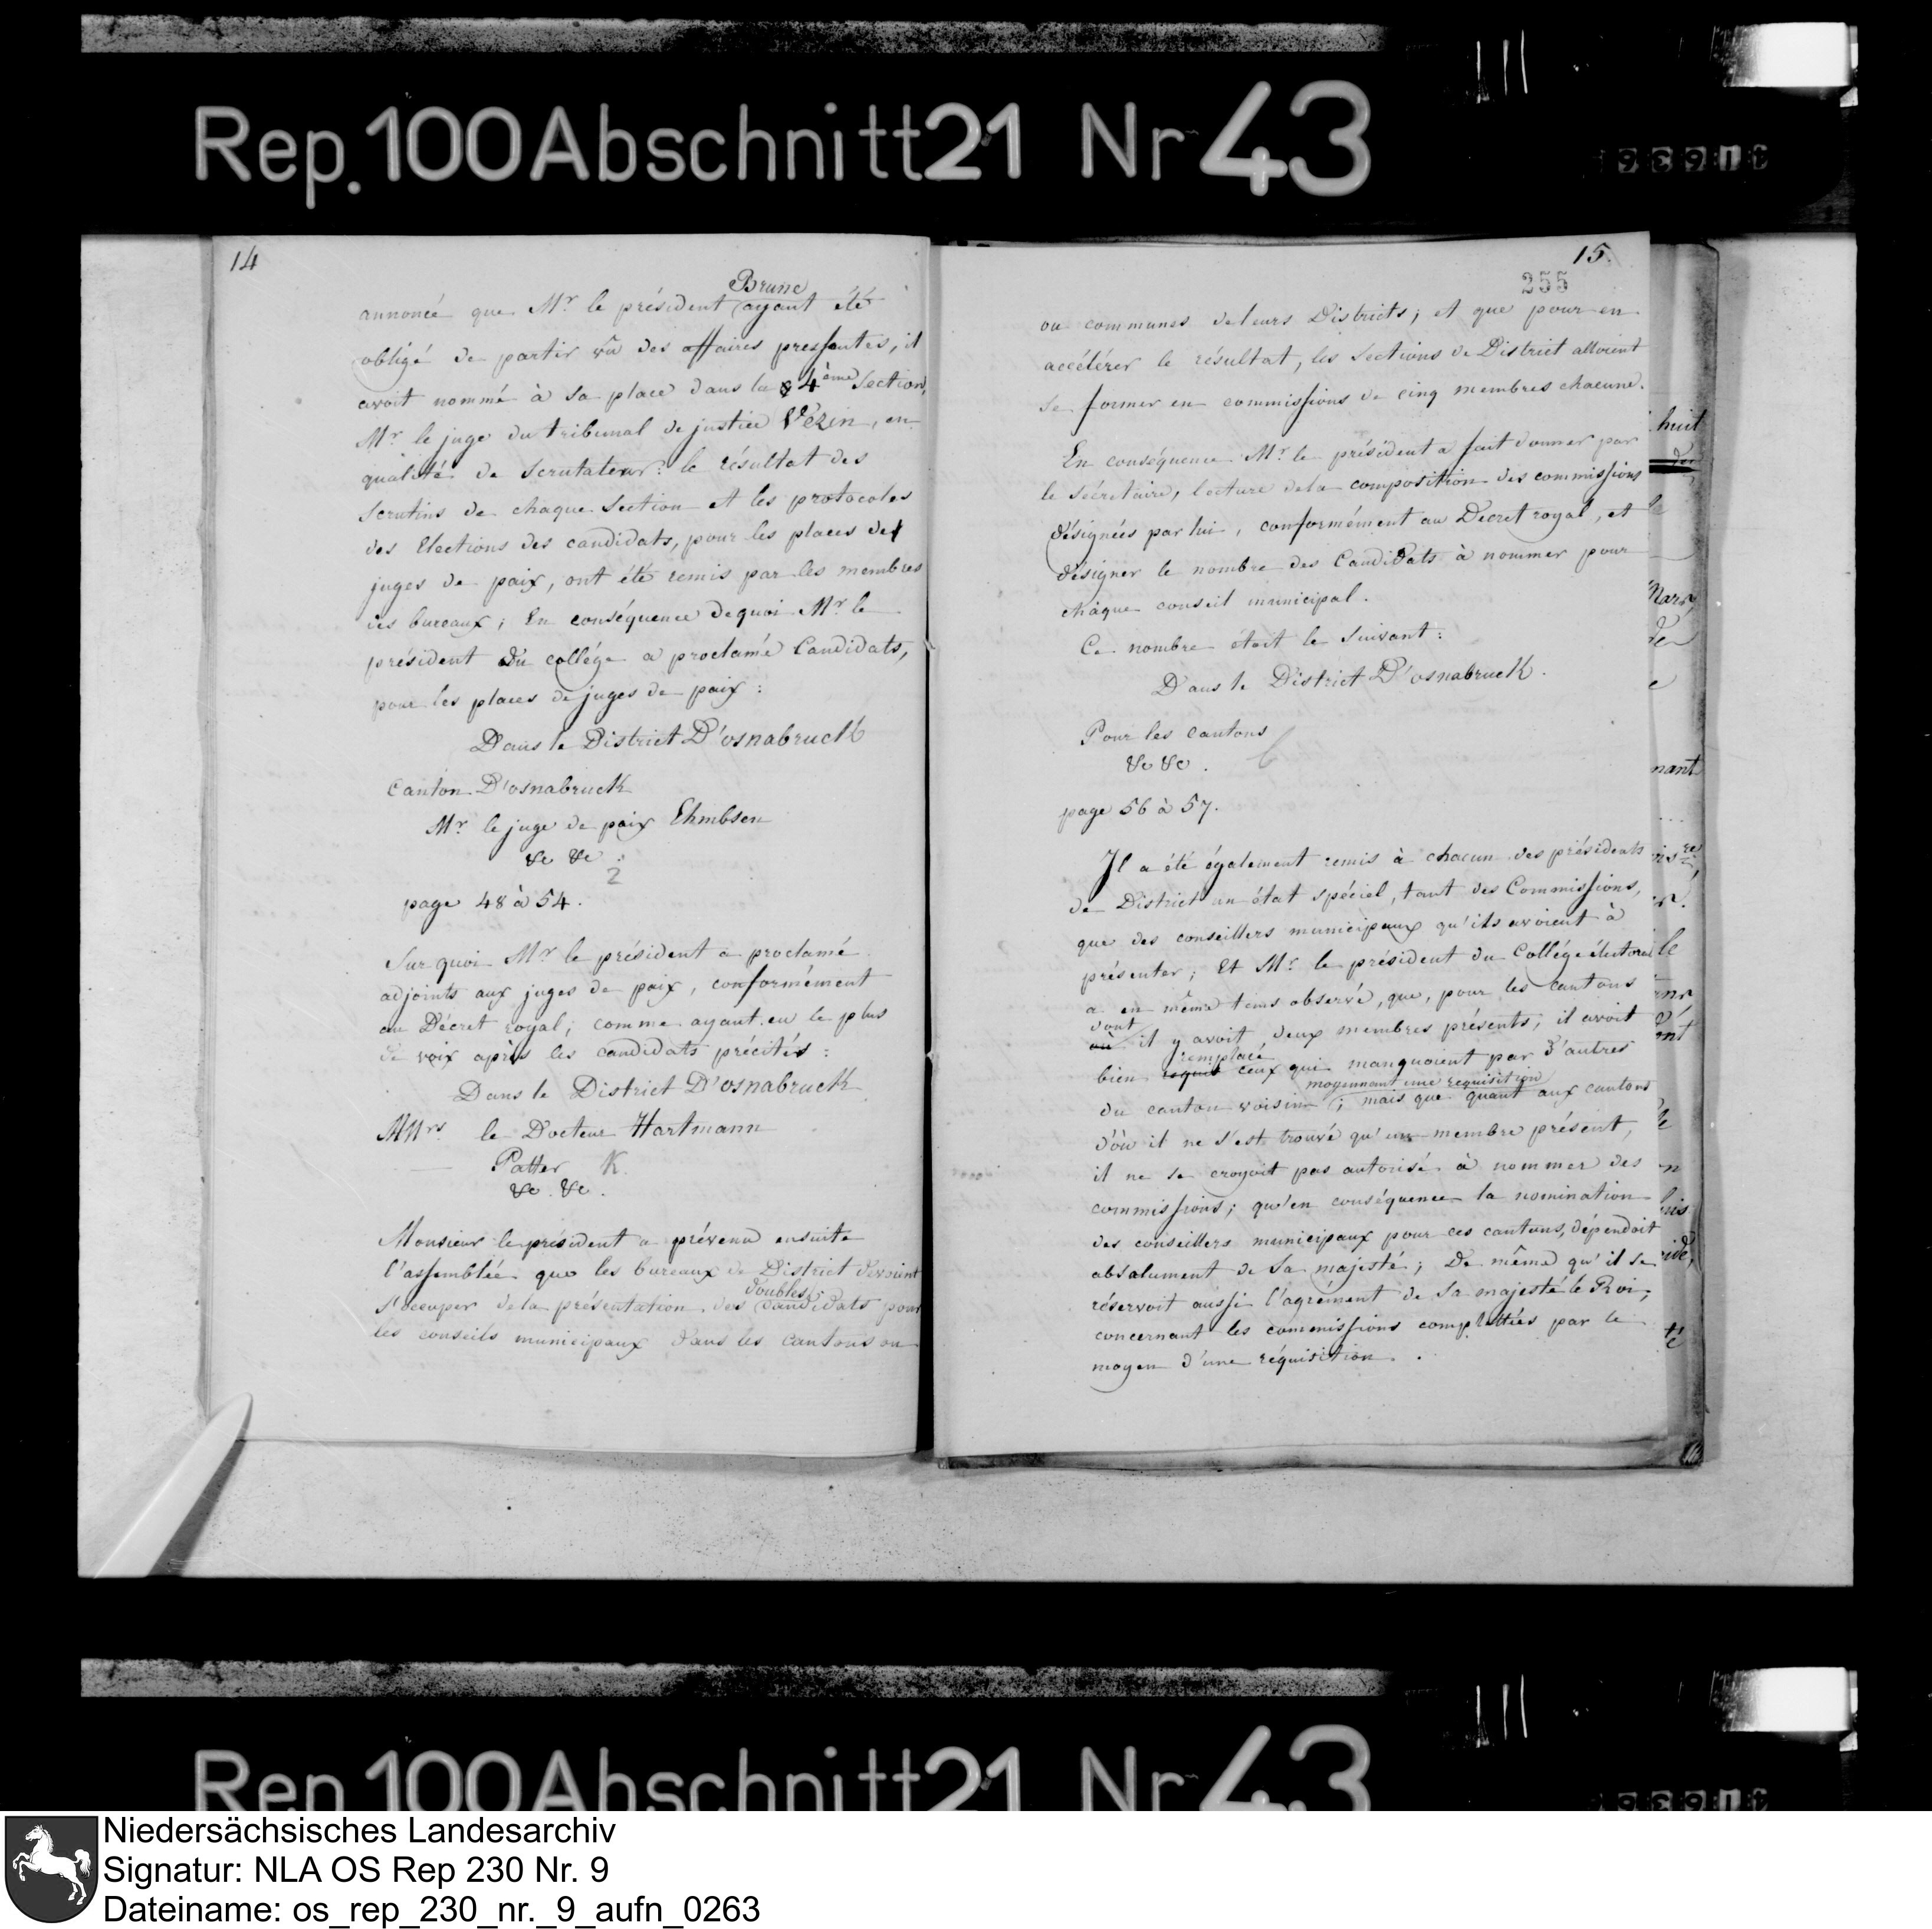 Rep. 100 Abschnitt 21 Nr 43
14
Brune
annoncé que Mr le président ayant été
obligé de partir vû des affaires pressantes, il
avoit nommé à sa place dans la 4ème Section,
Mr le juge du tribunal de justice Vezin, en
qualité de Scrutateur: le résultat des
Scrutins de chaque Section et les protocoles
des Elections des candidats, pour les places des
juges de paix, ont été remis par les membres
des bureaux; En conséquence de quoi Mr le
président du collége a proclamé Candidats,
pour les places de juges de paix:
Dans le District D'osnabruck
Canton D'osnabruck
Mr le juge de paix Ehmbsen
&c &c.
2
page 48 à 54.
Sur quoi Mr le président a proclamé
adjoints aux juges de paix, conformément
au Décret royal; comme ayant eu le plus
de voix après les candidats précités:
Dans le District D'osnabruck
MMrs le Docteur Hartmann
Patter K.
&c. &c.
Monsieur le président a prévenu ensuite
l'assemblée que les bureaux de District devoient
doubles
s'occuper de la présentation des Candidats pour
les conseils municipaux dans les Cantons ou
15.
255
ou communes de leurs Districts; et que pour en
accélérer le résultat, les Sections de District alloient
se former en commissions de cinq membres chacune.
En conséquence Mr le président a fait donner par
le Sécretaire, lecture de la composition des commissions
désignées par lui, conformément au Decret royal, et
désigner le nombre des Candidats à nommer pour
chàque conseil municipal.
Ce nombre étoit le Suivant:
Dans le District D'osnabruck.
Pour les cantons
&c &c.
page 56 à 57.
Il a été également remis à chacun des présidents
de District un état spéciel, tant des Commissions,
que des conseillers municipaux qu'ils avoient à
présenter; Et Mr le président du Collége électoral
a en même tems observé, que, pour les cantons
dont
où il y avoit deux membres présents, il avoit
remplacé
bien requis ceux qui manquoient par d'autres
moyennant une requisition
du canton voisin; mais que quant aux cantons
d'où il ne s'est trouvé qu'un membre présent,
il ne se croyoit pas autorisé à nommer des
commissions; qu'en conséquence la nomination
des conseillers municipaux pour ces cantons, dépendoit
absolument de Sa majesté; De même qu'il se
réservoit aussi l'agrément de Sa majesté le Roi,
concernant les commissions complettées par le
moyen d'une réquisition.
huit
Rep. 100 Abschnitt 21 Nr 43
Niedersächsisches Landesarchiv
Signatur: NLA OS Rep 230 Nr. 9
Dateiname: os_rep_230_nr._9_aufn_0263